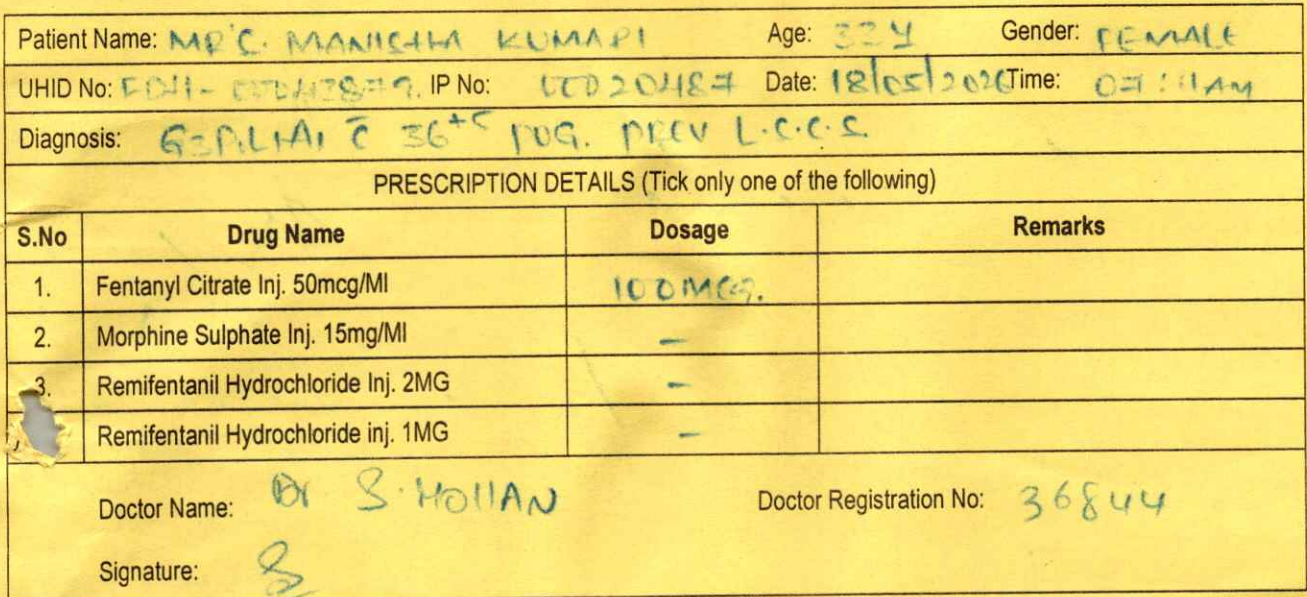 Patient Name: MRS. MANISHA KUMARI Age: 33Y Gender: FEMALE
UHID No: IP No: 00020487 Date: 18/05/2026 Time: 07:11AM
Diagnosis: G3P1L1A1 c̄ 36+5 POG. PREV L.S.C.S.
PRESCRIPTION DETAILS (Tick only one of the following)
S.No Drug Name Dosage Remarks
1. Fentanyl Citrate Inj. 50mcg/Ml 100MCG.
2. Morphine Sulphate Inj. 15mg/Ml -
3. Remifentanil Hydrochloride Inj. 2MG -
Remifentanil Hydrochloride inj. 1MG -
Doctor Name: Dr S. MOHAN Doctor Registration No: 36844
Signature: